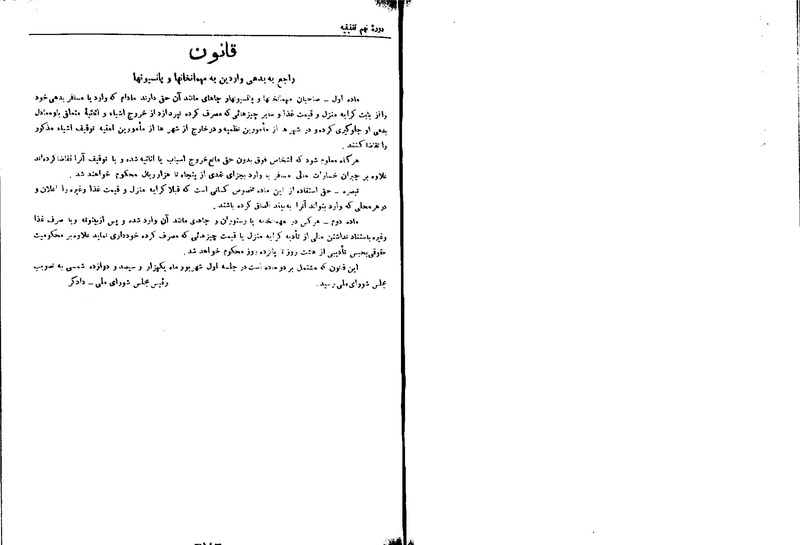 دورهٔ نهم تقنینیه
قانون
راجع به بدهی واردین به مهمانخانها و پانسیونها
ماده اول ـ صاحبان مهمانخانها و پانسیونها و جاهای مانند آن حق دارند مادام که وارد یا مسافر بدهی خود
را از بابت کرایه منزل و قیمت غذا و سایر چیزهائی که مصرف کرده نپردازد از خروج اشیاء و اثاثیهٔ متعلق باو معادل
بدهی او جلوگیری کرده و در شهرها از مأمورین نظمیه و در خارج از شهرها از مأمورین امنیه توقیف اشیاء مذکور
را تقاضا کنند .
هرگاه معلوم شود که اشخاص فوق بدون حق مانع خروج اسباب یا اثاثیه شده و یا توقیف آنرا تقاضا کرده‌اند
علاوه بر جبران خسارات مالی مسافر یا وارد بجزای نقدی از پنجاه تا هزار ریال محکوم خواهند شد .
تبصره ـ حق استفاده از این ماده مخصوص کسانی است که قبلا کرایه منزل و قیمت غذا وغیره را اعلان و
در هر محلی که وارد بتواند آنرا به‌بیند الصاق کرده باشند .
ماده دوم ـ هرکس در مهمانخانه یا رستوران و جاهای مانند آن وارد شده و پس از بیتوته ویا صرف غذا
وغیره باستناد نداشتن مالی از تأدیه کرایه منزل یا قیمت چیزهائی که مصرف کرده خودداری نماید علاوه بر محکومیت
حقوقی بحبس تأدیبی از هشت روز تا پانزده روز محکوم خواهد شد .
این قانون که مشتمل بر دو ماده است در جلسه اول شهریور ماه یکهزار و سیصد و دوازده شمسی به تصویب
مجلس شورای ملی رسید .
رئیس مجلس شورای ملی ـ دادگر